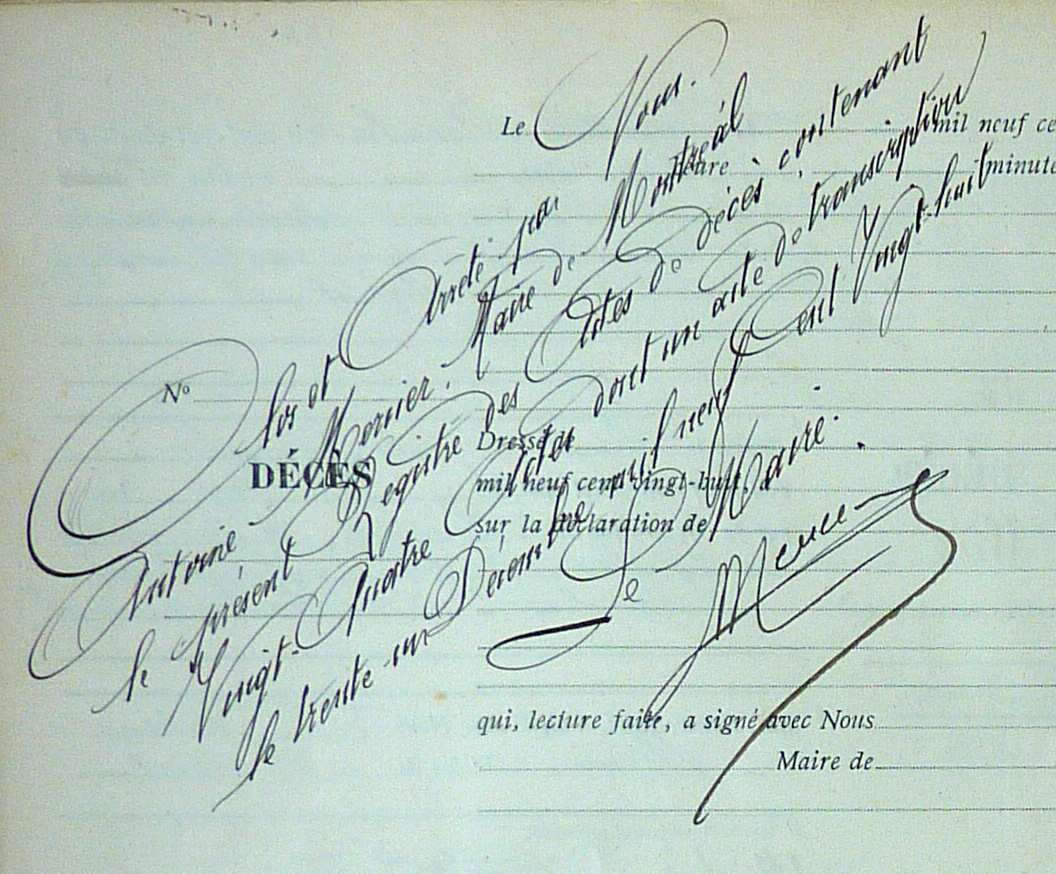 Le mil neuf ce
heure minute
No
DÉCÈS
Dressé le
mil neuf cent vingt-huit, à
sur la déclaration de
qui, lecture faite, a signé avec Nous
Maire de
Clos et Arrêté par Nous.
Antoine Mercier, Maire de Montréal
le présent Registre des Actes de décès contenant
Vingt-Quatre Actes dont un acte de transcription
le trente un Décembre mil neuf Cent Vingt-huit
Le Maire.